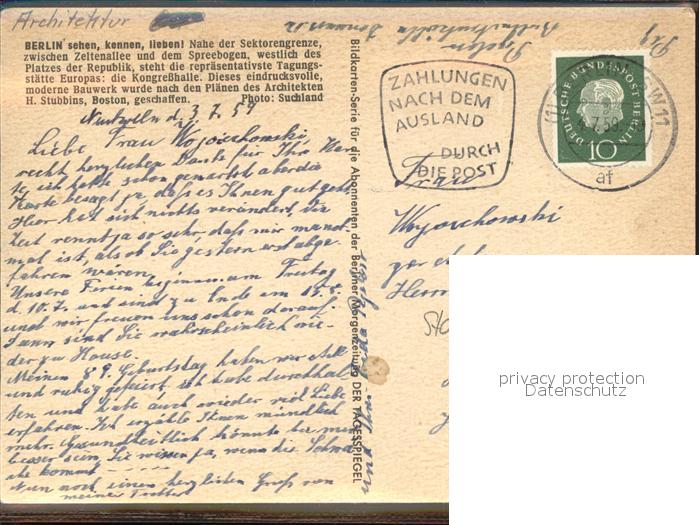 Architektur
BERLIN sehen, kennen, lieben! Nahe der Sektorengrenze,
zwischen Zeltenallee und dem Spreebogen, westlich des
Platzes der Republik, steht die repräsentativste Tagungs-
stätte Europas: die Kongreßhalle. Dieses eindrucksvolle,
moderne Bauwerk wurde nach den Plänen des Architekten
H. Stubbins, Boston, geschaffen. Photo: Suchland
d. 3.7.59
Liebe Frau Wojcechowski
recht herzlichen Dank für Ihre Kar-
te, ich hatte schon gewartet aber die
Karte besagt ja, daß es Ihnen gut geht.
Hier hat sich nichts verändert, die
Zeit rennt ja so sehr, daß mir manch-
mal ist, als ob Sie gestern erst abge-
fahren wären.
Unsere Ferien beginnen am Freitag
d. 10.7. und sind zu Ende am
und wir freuen uns schon darauf.
Dann sind Sie wahrscheinlich wie-
der zu Hause.
Meinen 89. Geburtstag haben wir still
und ruhig gefeiert, ich habe
und habe auch wieder viel Liebe
erfahren. Ich erzähle Ihnen mündlich
mehr. Gesundheitlich könnte es mir
besser sein, Sie wissen ja, wenn die
kommt
Nun noch einen herzlichen Gruß von
meiner Tochter
Bildkarten-Serie für die Abonnenten der Berliner Morgenzeitung DER TAGESSPIEGEL
ZAHLUNGEN
NACH DEM
AUSLAND
DURCH
DIE POST
DEUTSCHE BUNDESPOST BERLIN
10
(1) BERLIN SW 11
af
Frau
Wojcechowski
Herrn
privacy protection
Datenschutz